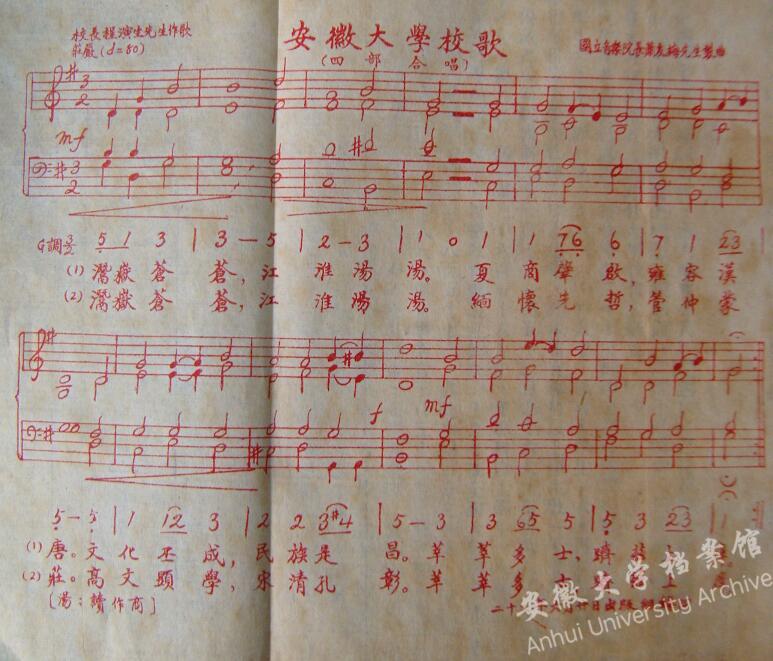 安徽大學校歌
(四部合唱)
校長程演生先生作歌
莊嚴(d=80)
國立音樂院長蕭友梅先生製曲
mf
G調 3/2 5 1 3 | 3 — 5 | 2 — 3 | 1 0 1 | 1 76 6 | 7 1 23
(1) 灊嶽蒼蒼,江淮湯湯。夏商肇啟,雍容漢
(2) 灊嶽蒼蒼,江淮湯湯。緬懷先哲,管仲蒙
f mf
5 — 5 | 1 12 3 | 2 2 3#4 | 5 — 3 | 3 65 5 | 5 3 23 | 1
(1) 唐。文化丕成,民族是昌。莘莘多士,躋
(2) 莊。高文顯學,宋清孔彰。莘莘多
[湯:讀作商]
二十
安徽大学档案馆
Anhui University Archive